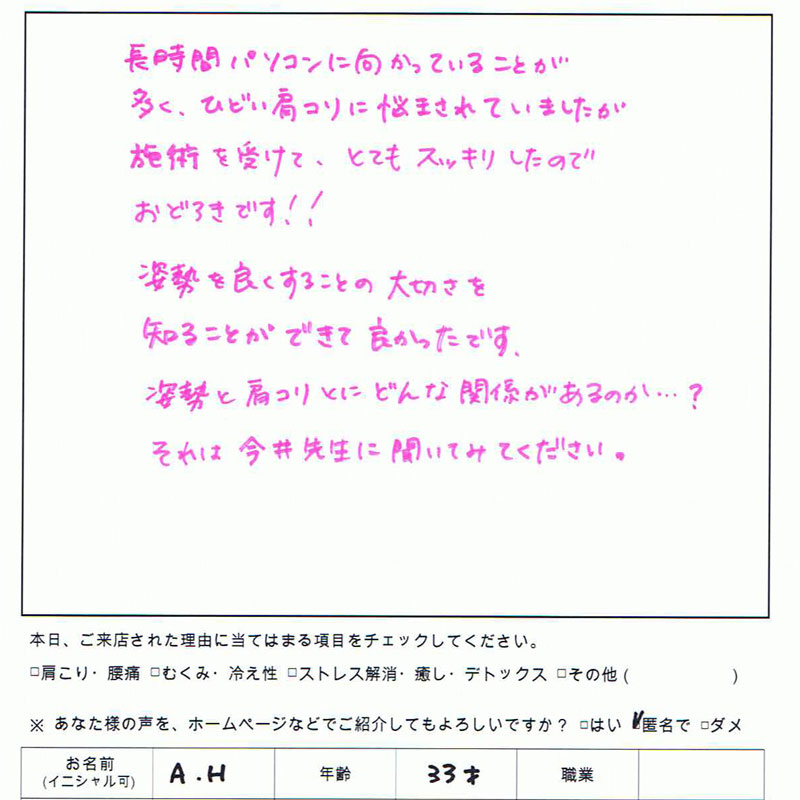 長時間パソコンに向かっていることが
多く、ひどい肩コリに悩まされていましたが
施術を受けて、とてもスッキリしたので
おどろきです!!
姿勢を良くすることの大切さを
知ることができて良かったです、
姿勢と肩コリとにどんな関係があるのか…?
それは今井先生に聞いてみてください。
本日、ご来店された理由に当てはまる項目をチェックしてください。
□肩こり・腰痛 □むくみ・冷え性 □ストレス解消・癒し・デトックス □その他 ( )
※ あなた様の声を、ホームページなどでご紹介してもよろしいですか? □はい ☑匿名で □ダメ
お名前 A.H 年齢 33才 職業
(イニシャル可)